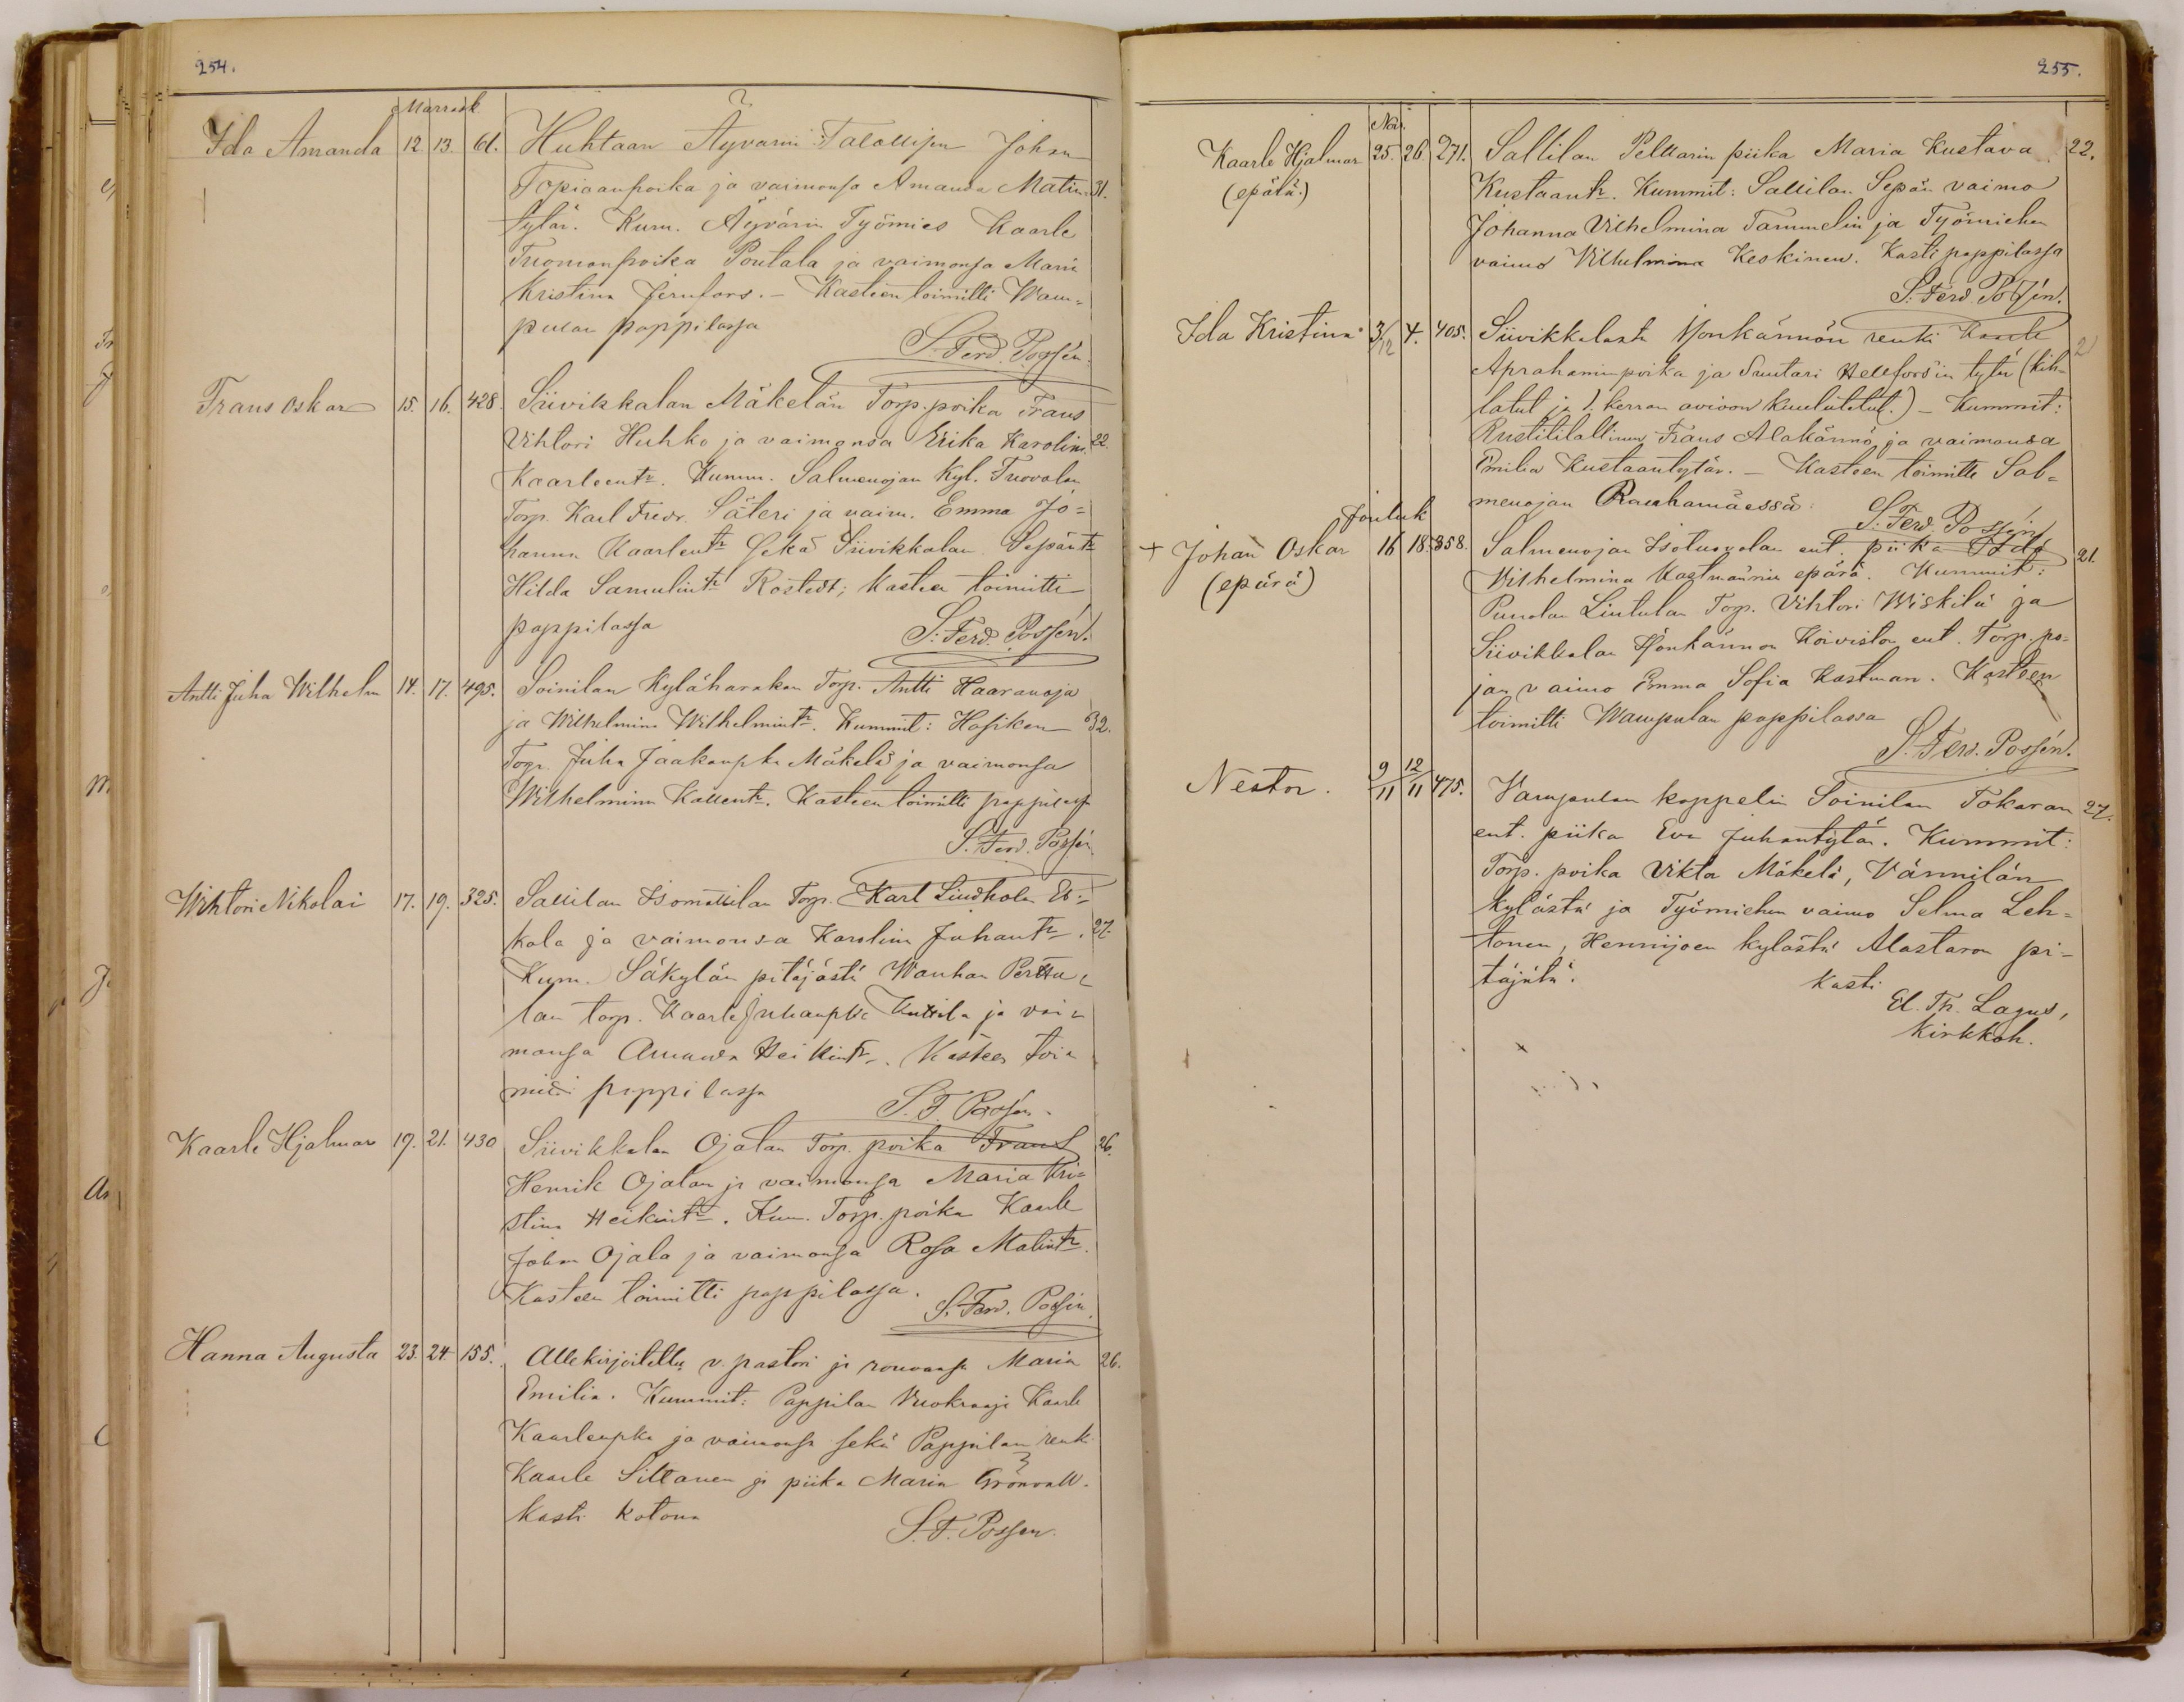 254.
Marrask
Ida Amanda 12. 13. 61. Huhtaan Äyvärin Talollisen Johan
Topiaanpoika ja vaimonsa Amanda Matin 31.
tytär. Kum. Äyvärin Työmies Kaarle
Tuomonpoika Poutala ja vaimonsa Maria
Kristina Jernfors. – Kasteen toimitti Wam-
pulan pappilassa
S. Ferd. Possén.
Frans Oskar 15. 16. 428. Siivikkalan Mäkelän Torp. poika Frans
Vihtori Huhko ja vaimonsa Erika Karolina 22.
Kaarleentr. Kumm. Salmenojan kyl. Tuovolan
Torp. Karl Fredr. Säteri ja vaim. Emma Jo-
hanna Kaarlentr sekä Siivikkalan Sepäntr
Hilda Samulintr Rostedt; kasteen toimitti
pappilassa
S. Ferd. Possén.
Antti Juha Wilhelm 14. 17. 495. Soinilan Kyläharakan Torp. Antti Haaranoja
ja Wilhelmina Wilhelmintr. Kummit: Hosikan 32.
Torp. Juha Jaakonpka Mäkelä ja vaimonsa
Wilhelmina Kallentr. Kasteen toimitti pappilassa
S. Ferd. Possén
Wihtori Nikolai 17. 19. 325. Sallilan Isomattilan Torp. Karl Lindholm Es-
kola ja vaimonsa Karolina Juhantr. 27.
Kum. Säkylän pitäjästä Wanhan Perttu-
lan torp. Kaarle Juhanpka Kuttila ja vai-
monsa Amanda Heikintr. Kasteen toi-
mitti pappilassa
S. F. Possén
Kaarle Hjalmar 19. 21. 430 Siivikkalan Ojalan Torp. poika Frans 26.
Henrik Ojalan ja vaimonsa Maria Kri-
stina Heikintr. Kum. Torp. poika Kaarle
Johan Ojala ja vaimonsa Rosa Matintr.
Kasteen toimitti pappilassa.
S. Ferd. Possén.
Hanna Augusta 23. 24. 155. Allekirjoitettu v. pastori ja rouvansa Maria 26.
Emilia. Kummit: Pappilan Vuokraaja Kaarle
Kaarlenpka ja vaimonsa sekä Pappilan renki
Kaarle Siltanen ja piika Maria Grönvall.
Kasti kotona
S. F. Possen.
255.
Nov.
Kaarle Hjalmar 25. 26. 271. Sallilan Pelttarin piika Maria Kustava 22.
(epärä.) Kustaantr. Kummit: Sallilan Sepän vaimo
Johanna Vilhelmina Tammelin ja Työmiehen
vaimo Vilhelmina Keskinen. Kasti pappilassa
S. Ferd Possén.
Ida Kristina 3/12 4. 405. Siivikkalasta Honkännön renki Kaarle 21
Aprahaminpoika ja Suutari Hellfors'in tytär (kih-
latut ja 1. kerran avioon kuulutetut.) – Kummit:
Rustitilallinen Frans Alakännö ja vaimonsa
Emilia Kustaantytär. – Kasteen toimitti Sal-
menojan Rauhamäessä
S. Ferd. Possén
Jouluk
+ Johan Oskar 16 18. 358. Salmenojan Isotuovolan ent. piika Ida 21.
(epärä) Wilhelmina Kastmannin epärä. Kummit:
Punolan Lintulan Torp. Vihtori Wiskilä ja
Siivikkalan Honkännön Koiviston ent. Torp. po-
jan vaimo Emma Sofia Kastman. Kasteen
toimitti Wampulan pappilassa
S. Ferd. Possén.
Nestor. 9/11 12/11 475. Vampulan kappelin Soinilan Tokaran 27.
ent. piika Eva Juhantytär. Kummit:
Torp. poika Vikta Mäkelä, Vännilän
kylästä ja Työmiehen vaimo Selma Leh-
tonen, Hennijoen kylästä Alastaron pi-
täjätä.
Kasti
El. Th. Lagus,
Kirkkoh.